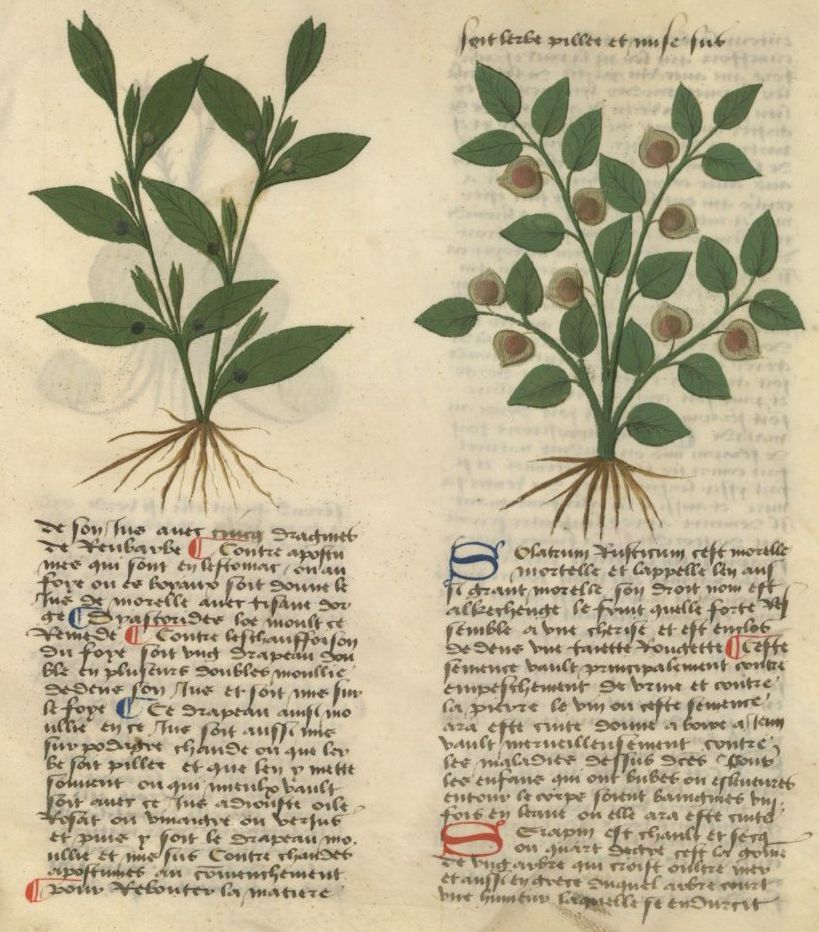 de son jus avec cincq dragmes
de Reubarbe ¶ Contre apostu
mes qui sont en lestomac / ou au
foye ou es boyaux soit donne le
jus de morelle avec tisane dor
ge ¶ Dyascorides loe moult ce
Remede ¶ Contre leschauffoison
du foye soit ung drapeau dou
ble en plusieurs doubles moullie
dedens son jus et soit mis sur
le foye ¶ Ce drapeau ainsi mo
ullie en ce jus soit aussi mis
sur podagre chaude ou que ler
be soit pillee et que len y mette
souvent ou qui mieulx vault
soit avec ce jus adiouste oile
Rosat ou vinaigre ou verjus
et puis y soit le drapeau mo
ullie et mis sus Contre chaudes
apostumes au commenchement
¶ pour Rebouter la matiere
soit lerbe pillee et mise sus
Solatrum Rusticum cest morelle
mortelle et lappelle len aus
si grant morelle son droit nom est
alkechenge le fruit quelle porte Res
semble a une cherise et est enclos
dedens une taiette Rougette ¶ Ceste
semence vault principalement contre
empeschement de urine et contre
la pierre le vin ou ceste semence
ara este cuite donne a boire a jeun
vault merveilleusement contre
les maladies dessus dces Pour
les enfans qui ont bubes ou esleveures
entour le corps soient baingnies .vii.
fois en leaue ou elle ara este cuite
Serapin est chault et secq
ou quart degre cest la gome
de ung arbre qui croist oultre mer
et aussi en grece duquel arbre court
une humeur laquelle se endurcit